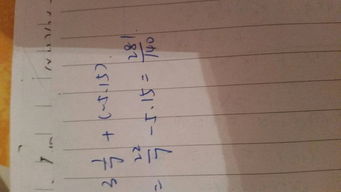 3 1/7 + (-5.15)
= 22/7 - 5.15 = 281/140